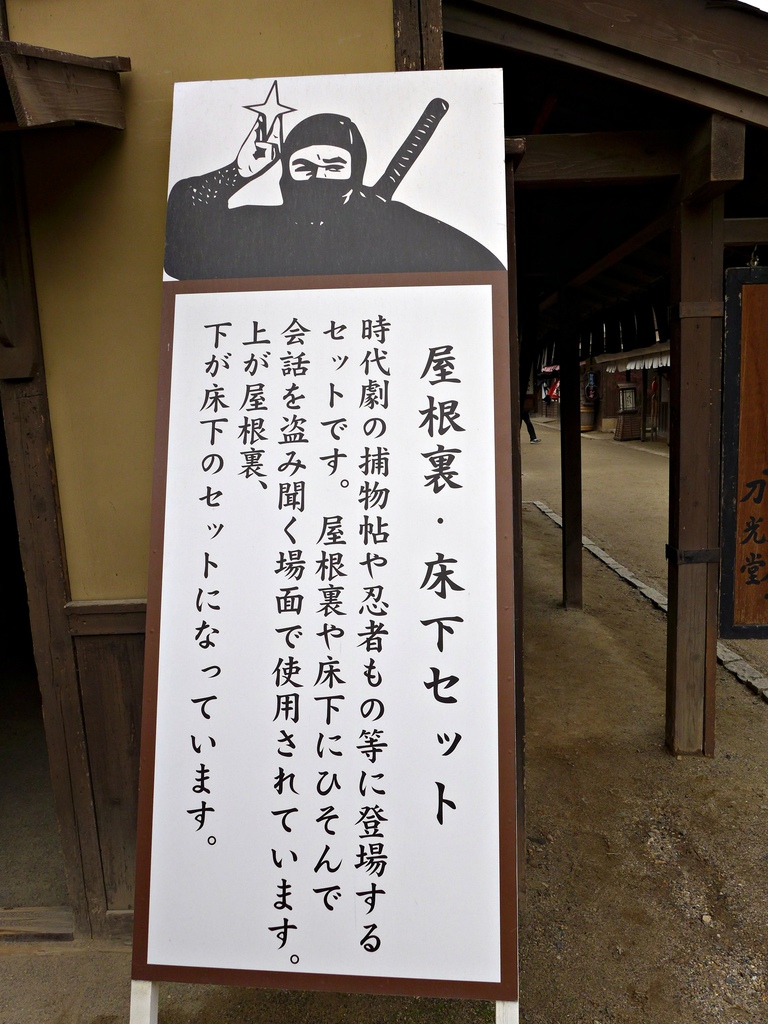 屋根裏・床下セット
時代劇の捕物帖や忍者もの等に登場する
セットです。屋根裏や床下にひそんで
会話を盗み聞く場面で使用されています。
上が屋根裏、
下が床下のセットになっています。
刀光堂